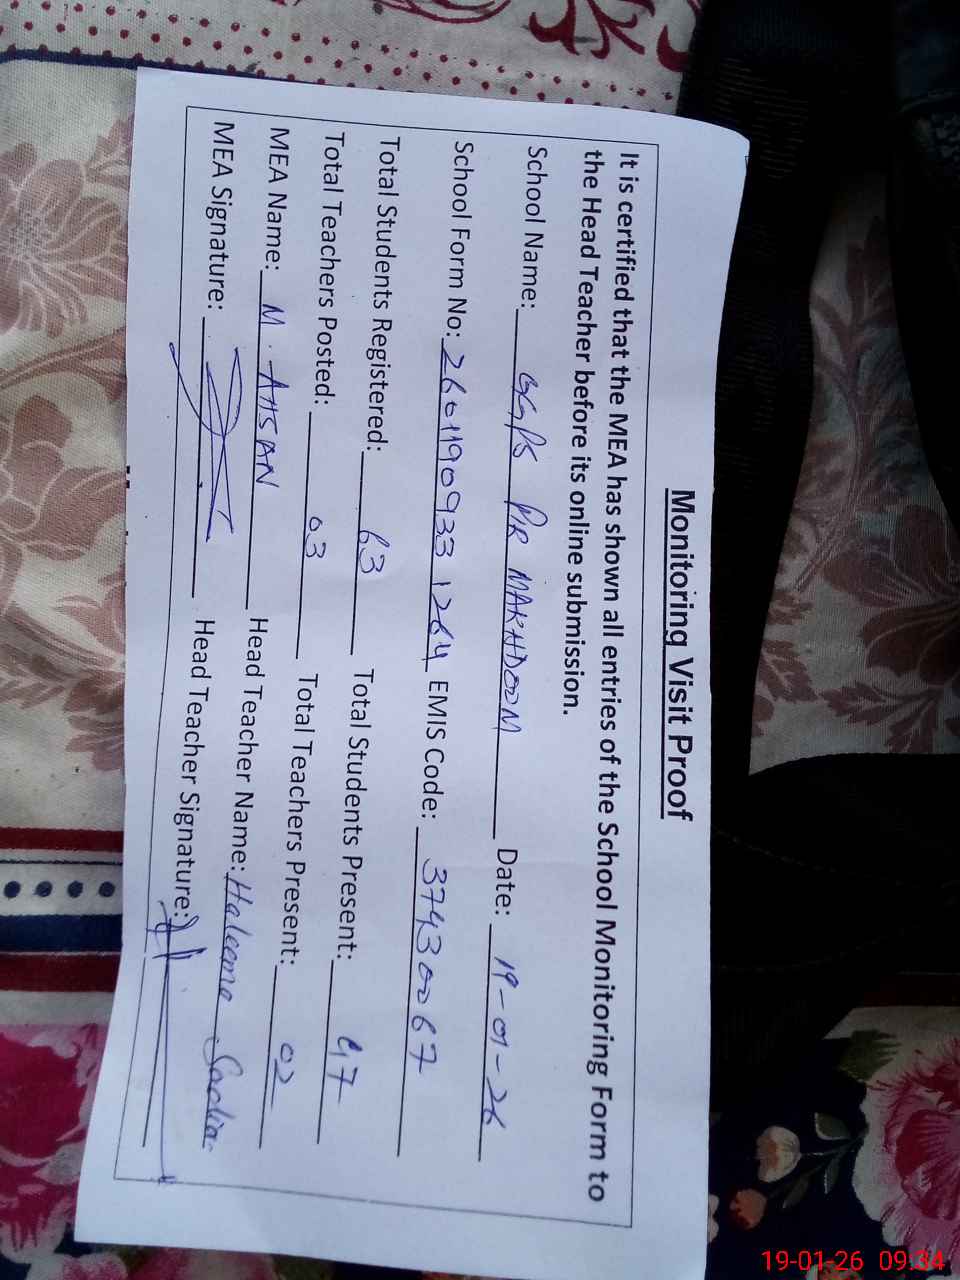 Monitoring Visit Proof
It is certified that the MEA has shown all entries of the School Monitoring Form to
the Head Teacher before its online submission.
School Name: GGPS PIR MAKHDOOM Date: 19-01-26
School Form No: 26011909331264 EMIS Code: 37430067
Total Students Registered: 63 Total Students Present: 47
Total Teachers Posted: 03 Total Teachers Present: 02
MEA Name: M. AHSAN Head Teacher Name: Haleema Sadia
MEA Signature: Head Teacher Signature:
19-01-26 09:34